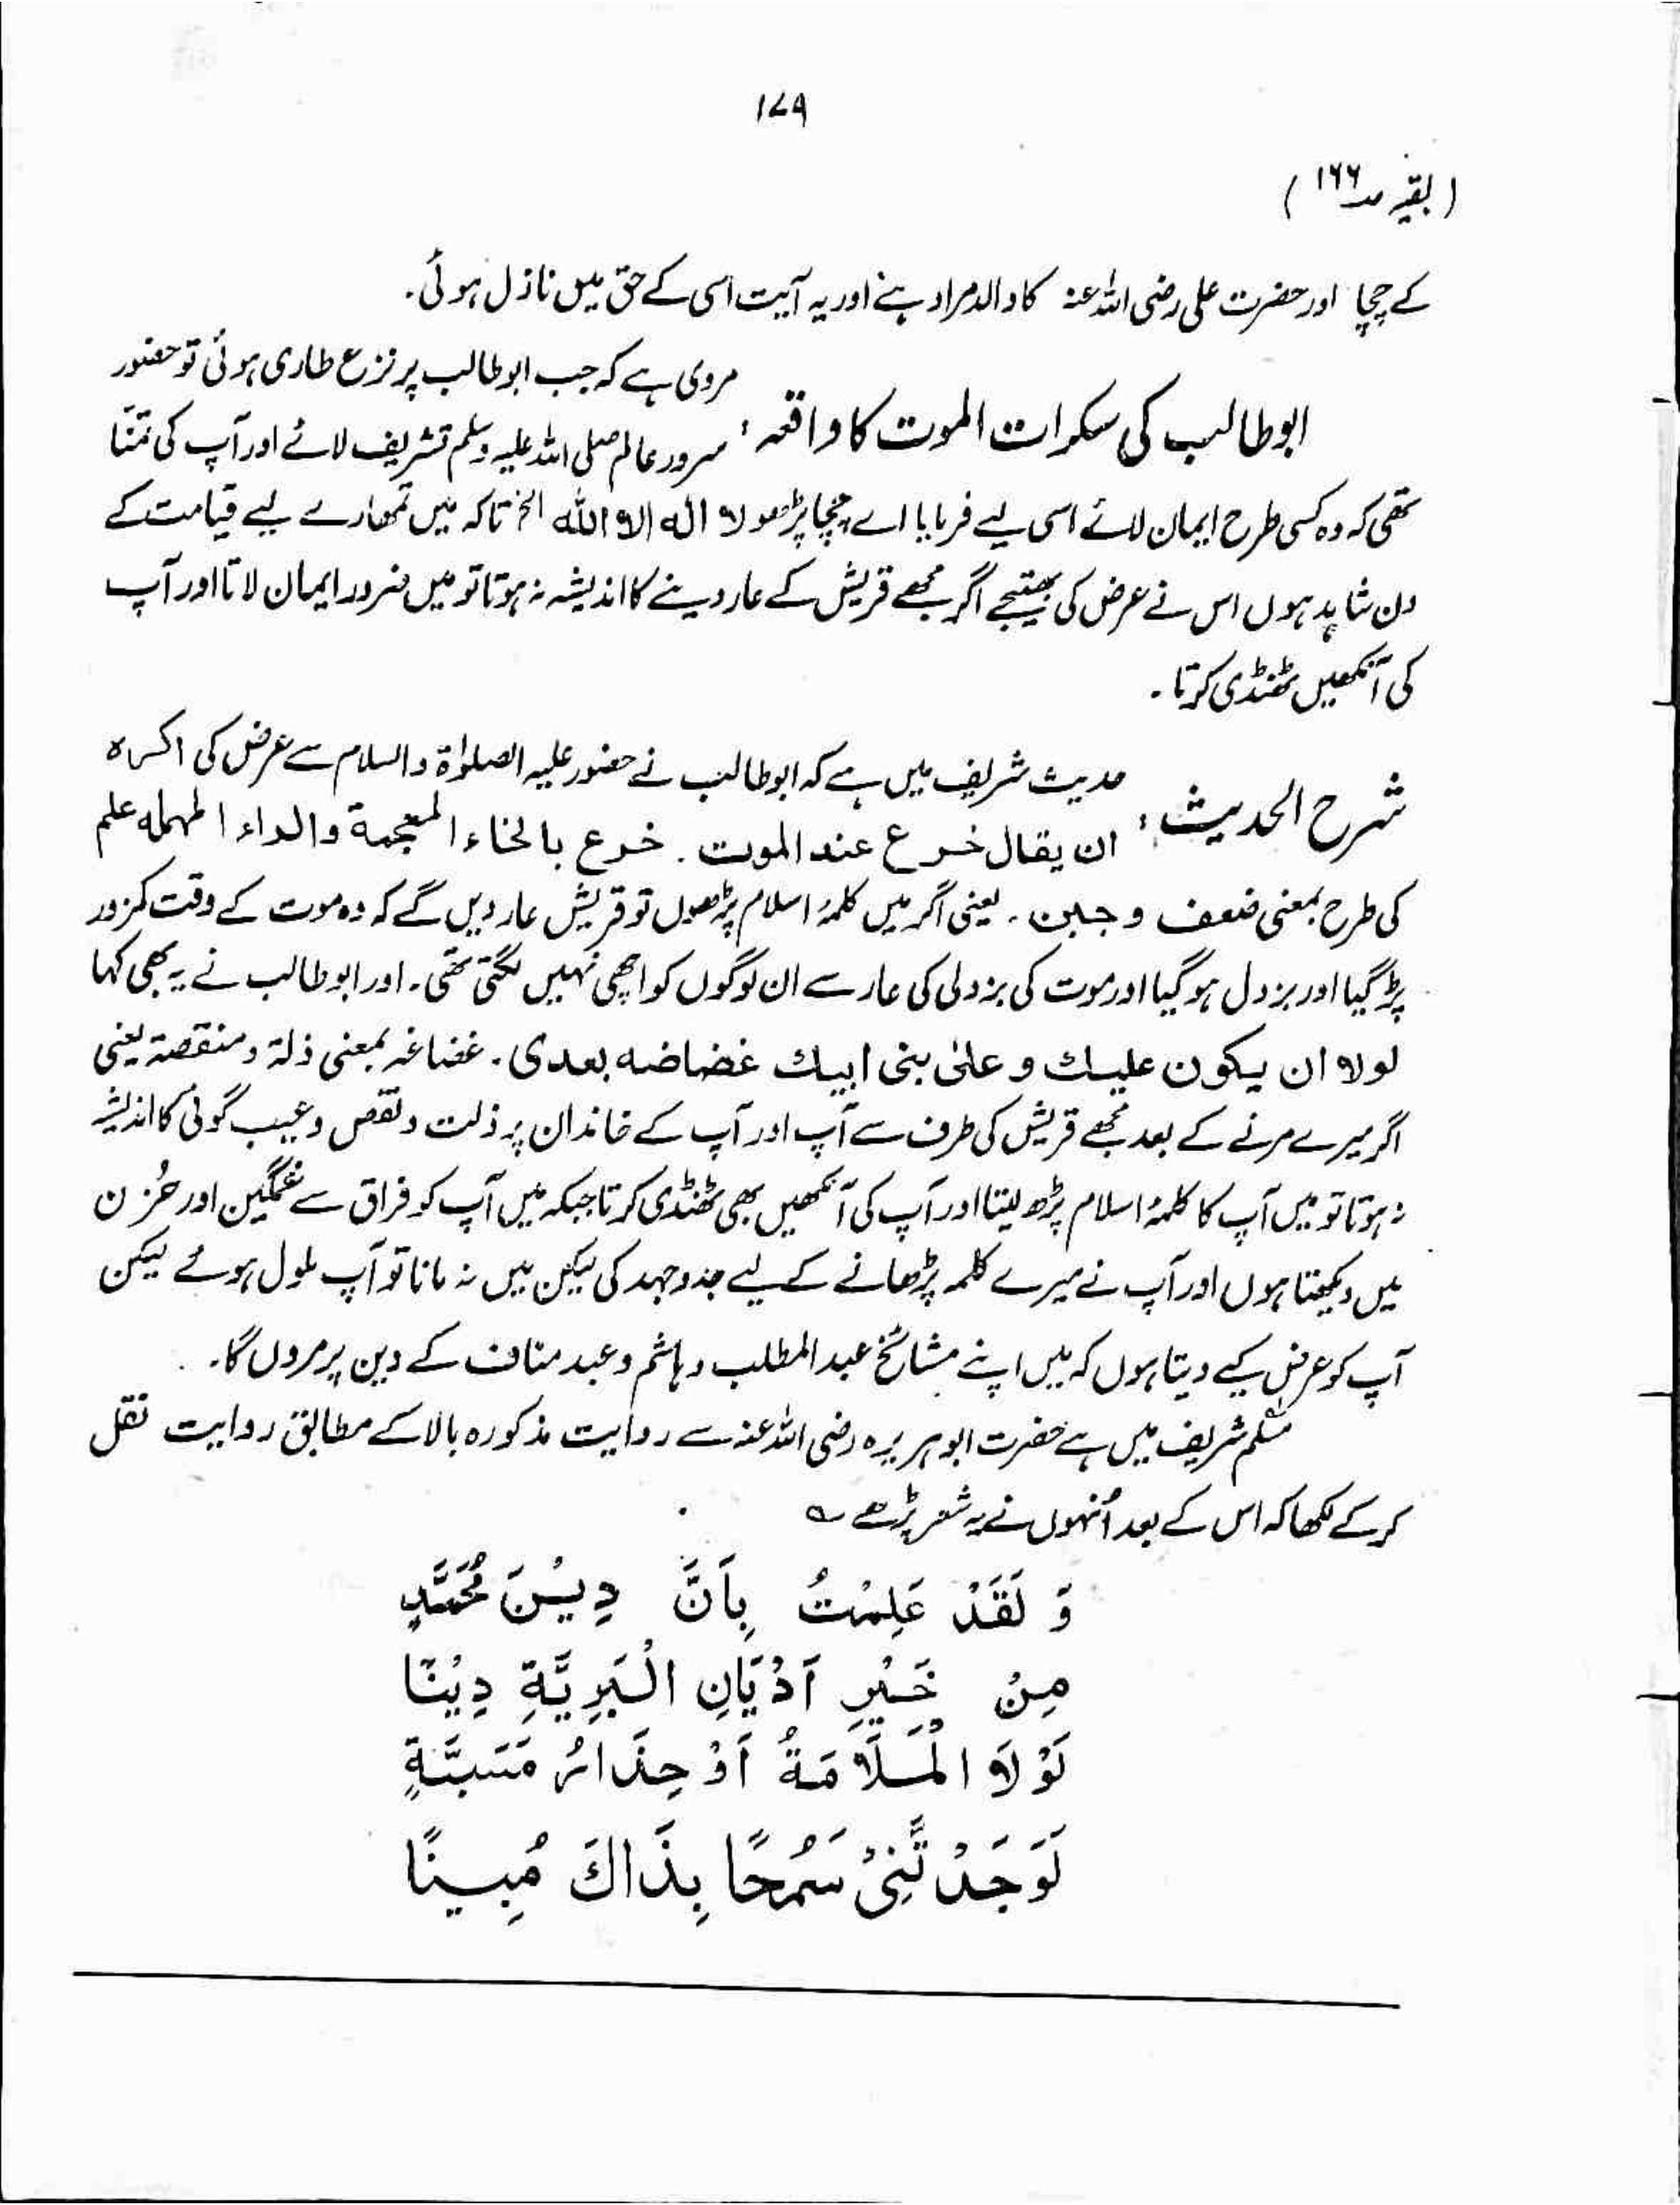 ۱۷۹
( بقیہ صـ۱۶۶ )
کے چچا اور حضرت علی رضی اللہ عنہ کا والد مراد ہے اور یہ آیت اسی کے حق میں نازل ہوئی۔
ابوطالب کی سکرات الموت کا واقعہ : مروی ہے کہ جب ابوطالب پر نزع طاری ہوئی تو حضور
سرور عالم صلی اللہ علیہ وسلم تشریف لائے اور آپ کی تمنّا
تھی کہ وہ کسی طرح ایمان لائے اسی لیے فرمایا اے چچا پڑھو لا الٰہ الا اللّٰہ الخ تاکہ میں تمھارے لیے قیامت کے
دن شاہد ہوں اس نے عرض کی بھتیجے اگر مجھے قریش کے عار دینے کا اندیشہ نہ ہوتا تو میں ضرور ایمان لاتا اور آپ
کی آنکھیں ٹھنڈی کرتا ۔
شرح الحدیث : حدیث شریف میں ہے کہ ابوطالب نے حضور علیہ الصلوٰۃ والسلام سے عرض کی اکرہ
ان يقال خرع عند الموت . خرع بالخاء المعجمة والراء المهمله علم
کی طرح بمعنی ضعف و جبن ۔ یعنی اگر میں کلمۂ اسلام پڑھوں تو قریش عار دیں گے کہ وہ موت کے وقت کمزور
پڑ گیا اور بزدل ہو گیا اور موت کی بزدلی کی عار سے ان لوگوں کو اچھی نہیں لگتی تھی۔ اور ابوطالب نے یہ بھی کہا
لولا ان يكون عليك و علىٰ بنى ابيك غضاضه بعدى ۔ غضاغہ بمعنی ذلة و منقصة یعنی
اگر میرے مرنے کے بعد مجھے قریش کی طرف سے آپ اور آپ کے خاندان پر ذلت و نقص و عیب گوئی کا اندیشہ
نہ ہوتا تو میں آپ کا کلمۂ اسلام پڑھ لیتا اور آپ کی آنکھیں بھی ٹھنڈی کرتا جبکہ میں آپ کو فراق سے غمگین اور حُزن
میں دیکھتا ہوں اور آپ نے میرے کلمہ پڑھانے کے لیے جدوجہد کی لیکن میں نہ مانا تو آپ ملول ہوئے لیکن
آپ کو عرض کیے دیتا ہوں کہ میں اپنے مشائخ عبدالمطلب و ہاشم و عبد مناف کے دین پر مروں گا۔
مسلم شریف میں ہے حضرت ابوہریرہ رضی اللہ عنہ سے روایت مذکورہ بالا کے مطابق روایت نقل
کر کے لکھا کہ اس کے بعد اُنہوں نے یہ شعر پڑھے ؎
وَ لَقَدْ عَلِمْتُ بِاَنَّ دِيْنَ مُحَمَّدٍ
مِنْ خَيْرِ اَدْيَانِ الْبَرِيَّةِ دِيْنًا
لَوْ لَا الْمَلَامَةُ اَوْ حِذَارُ مَسَبَّةٍ
لَوَجَدْتَّنِیْ سَمُحًا بِذَاكَ مُبِينًا